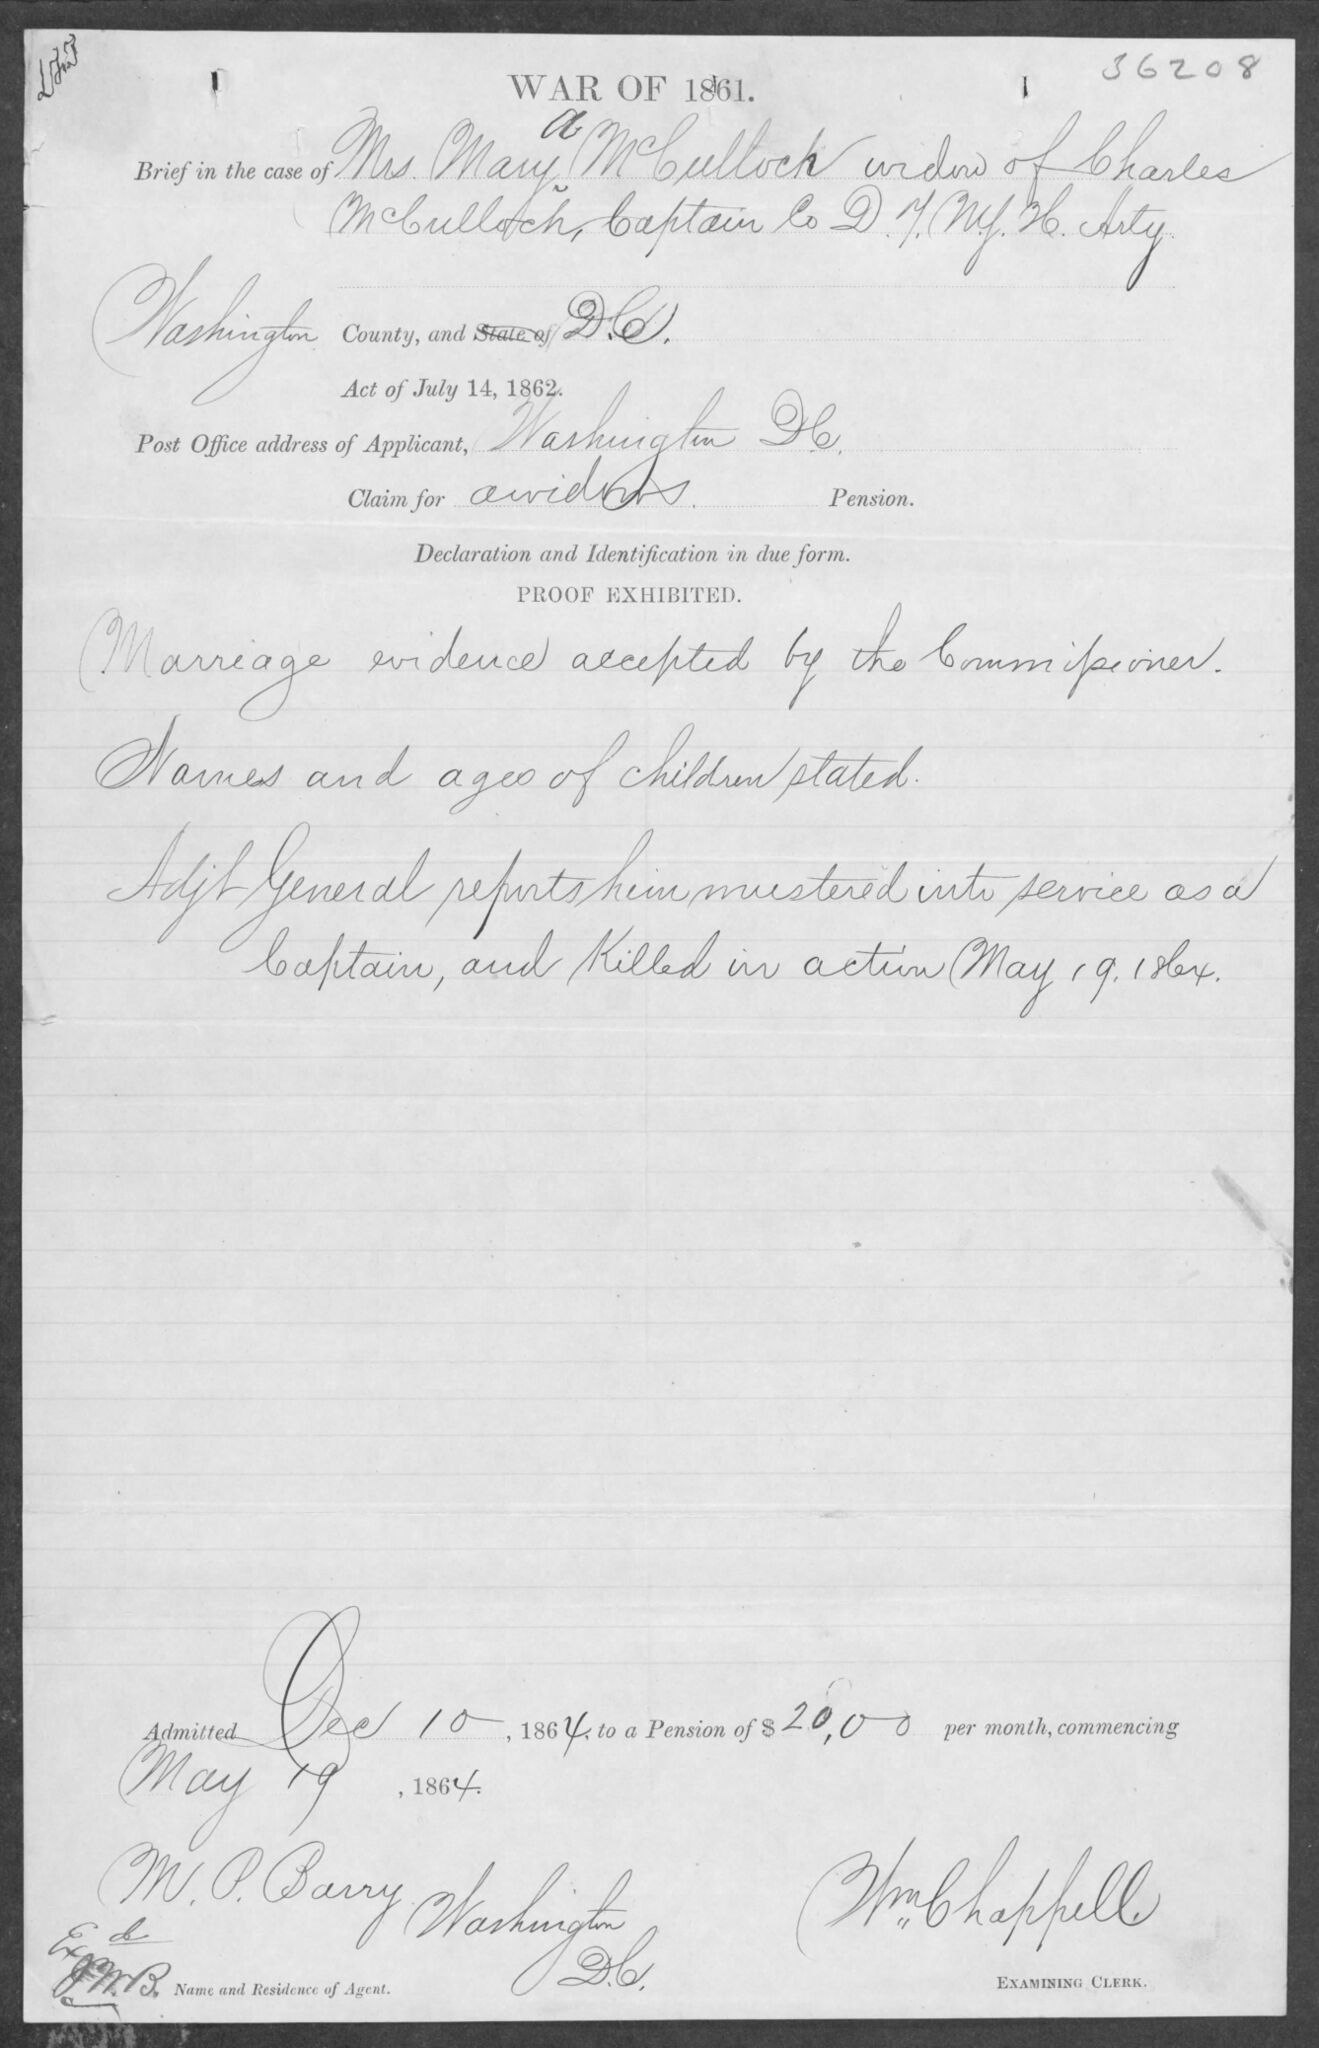 36208
WAR OF 1861.
a
Brief in the case of Mrs. Mary McCulloch widow of Charles
McCulloch, Captain Co D. 7. N.Y. H. Arty.
Washington County, and State of D.C.
Act of July 14, 1862.
Post Office address of Applicant, Washington DC.
Claim for a widows. Pension.
Declaration and Identification in due form.
PROOF EXHIBITED.
Marriage evidence accepted by the Commissioner.
Names and ages of children stated.
Adjt General reports him mustered into service as a
Captain, and Killed in action May 19. 1864.
Admitted Dec 10, 1864. to a Pension of $20,00 per month, commencing
May 19, 1864.
M. P. Barry Washington D.C.
Wm Chappell
Ex
W.B. Name and Residence of Agent.
EXAMINING CLERK.